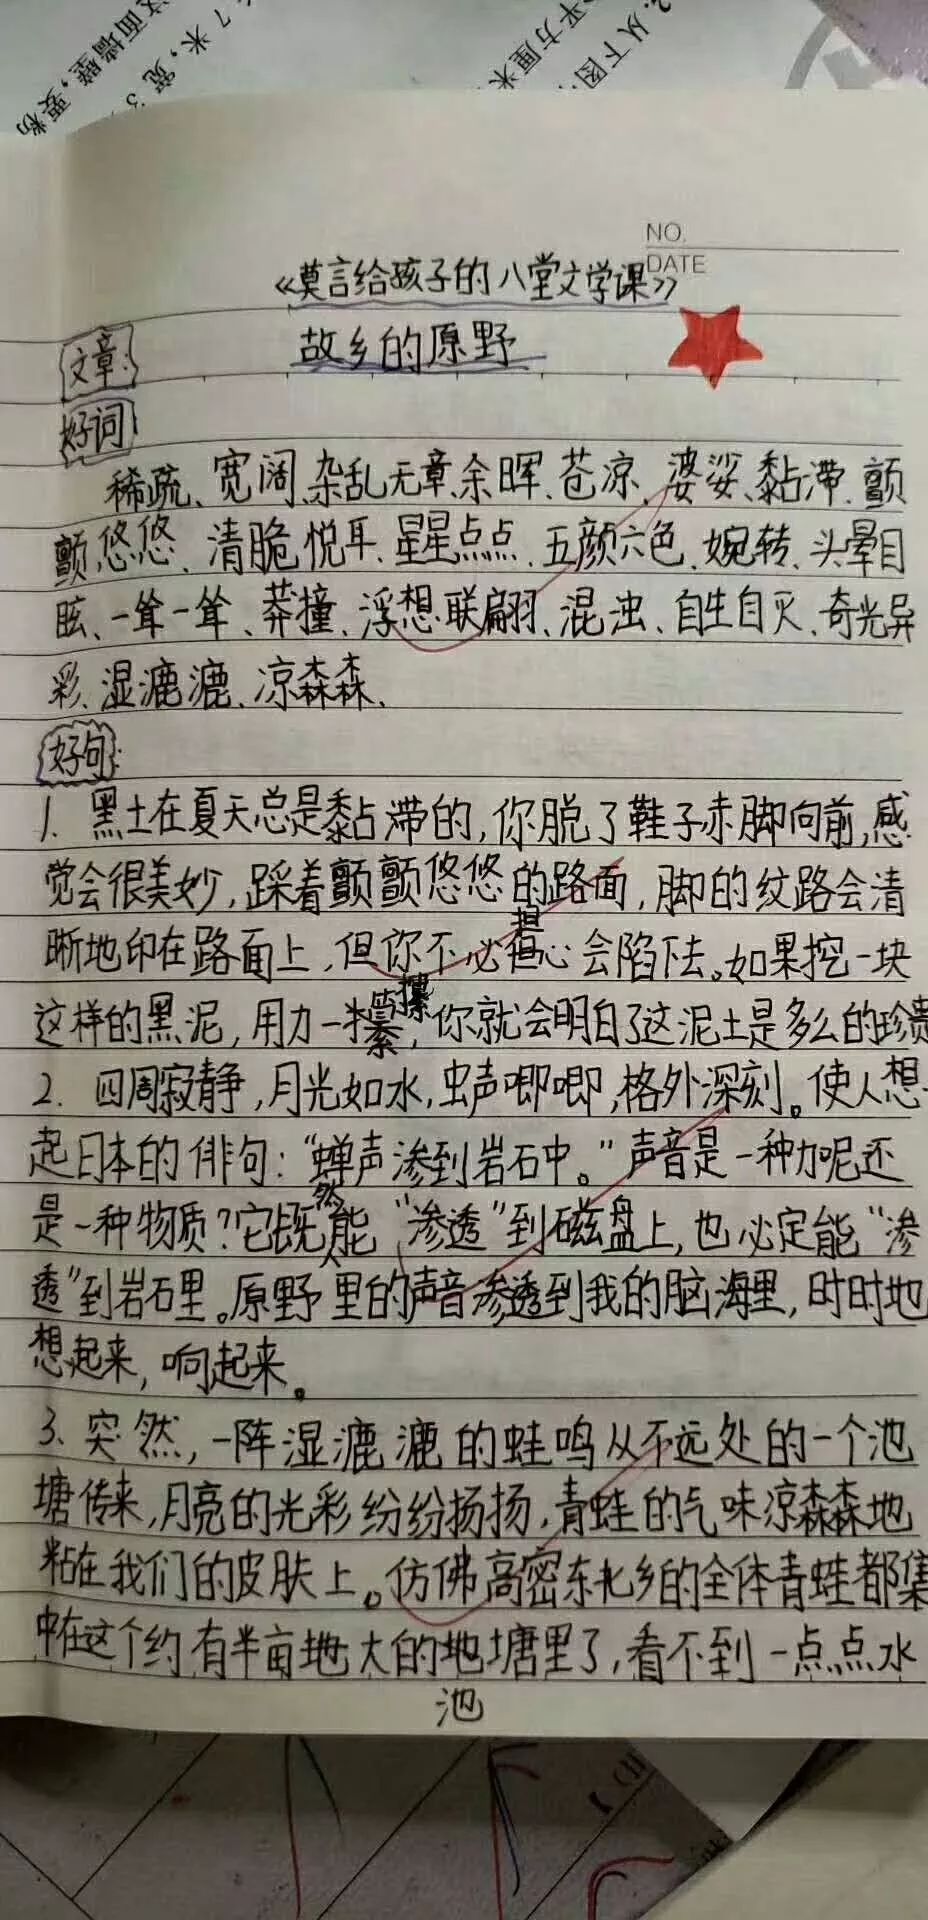 这面墙壁,要粉
7米,宽3
平方厘米
2.从下图
NO.
DATE
《莫言给孩子的八堂文学课》
文章: 故乡的原野
好词
稀疏、宽阔、杂乱无章、余晖、苍凉、婆娑、黏滞、颤
颤悠悠、清脆悦耳、星星点点、五颜六色、婉转、头晕目
眩、一耸一耸、莽撞、浮想联翩、混浊、自生自灭、奇光异
彩、湿漉漉、凉森森、
好句:
1.黑土在夏天总是黏滞的,你脱了鞋子赤脚向前,感
觉会很美妙,踩着颤颤悠悠的路面,脚的纹路会清
晰地印在路面上,但你不必担心会陷下去。如果挖一块
这样的黑泥,用力一攥,你就会明白了这泥土是多么的珍贵
2.四周寂静,月光如水,虫声唧唧,格外深刻。使人想
起日本的俳句:“蝉声渗到岩石中。”声音是一种力呢还
是一种物质?它既然能“渗透”到磁盘上,也必定能“渗
透”到岩石里。原野里的声音渗透到我的脑海里,时时地
想起来,响起来。
3.突然,一阵湿漉漉的蛙鸣从不远处的一个池
塘传来,月亮的光彩纷纷扬扬,青蛙的气味凉森森地
粘在我们的皮肤上。仿佛高密东北乡的全体青蛙都集
中在这个约有半亩地大的地塘里了,看不到一点点水
池